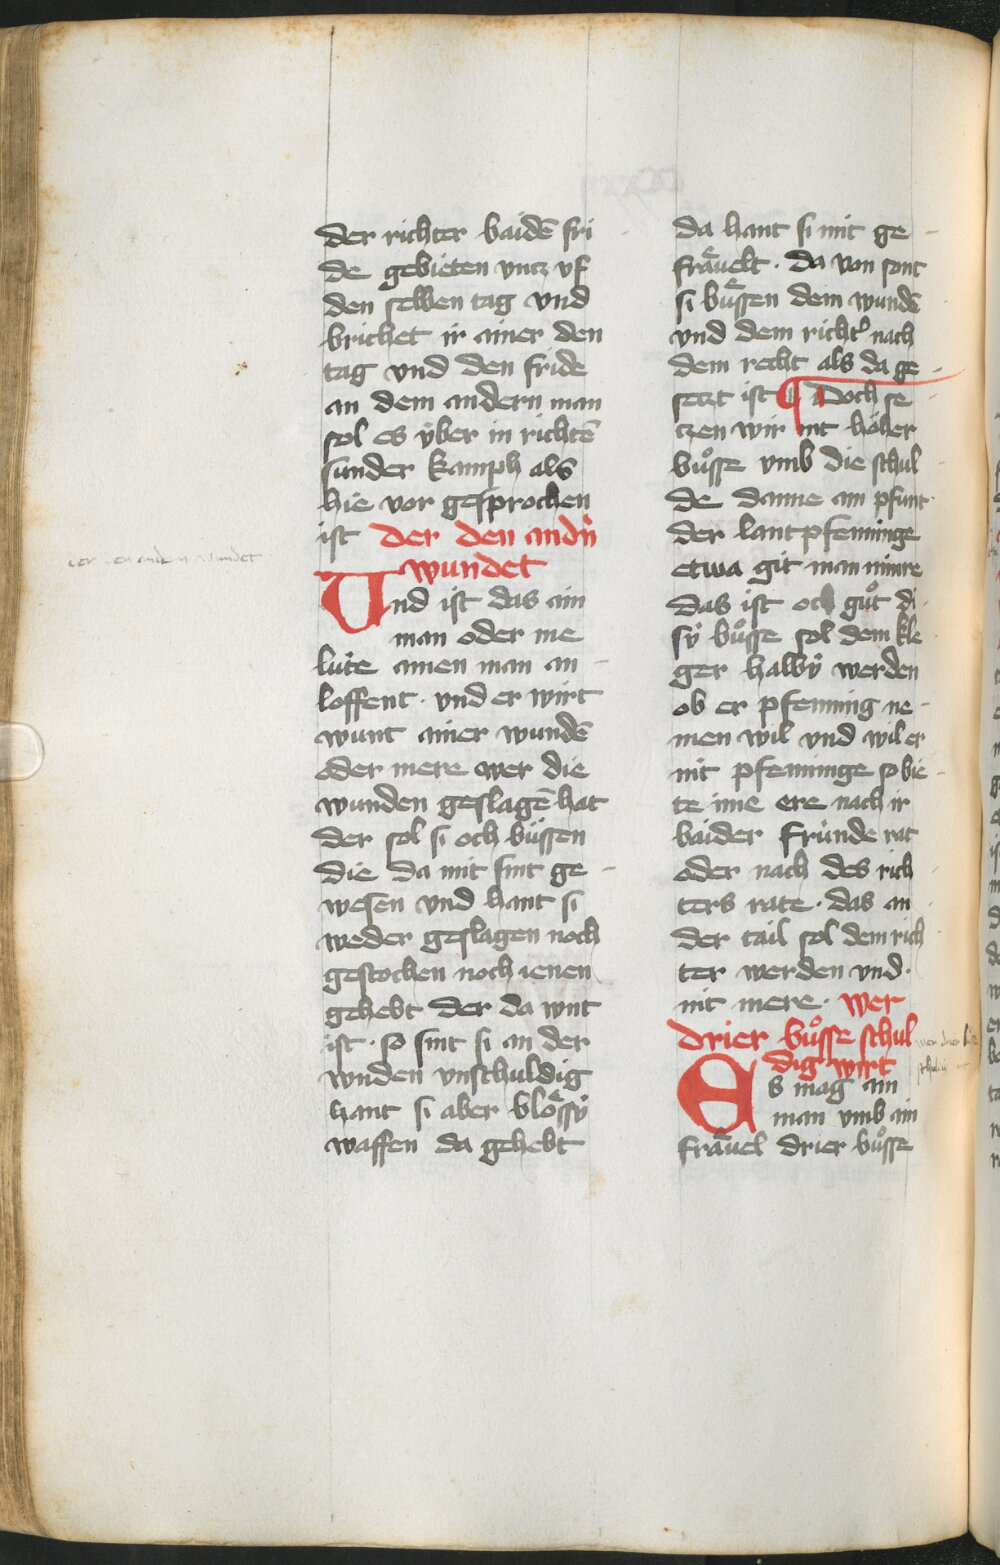 der richter baidē fri
de gebieten vntz vf
den selben tag vnd
brichet ir ainer den
tag vnd den fride
an dem andern man
sol es v̈ber in richtē
sunder kamph als
hie vor gesprochen
ist der den andn̄
wundet
Vnd ist das ain
man oder me
lúte ainen man an
loffent · vnd er wirt
wunt ainer wundē
oder mere wer die
wunden geslagē hat
der sol si och bůssen
die da mit sint ge
wesen vnd hant si
weder geslagen noch
gestochen noch ienen
gehebt der da wnt
ist · so sint si an der
wnden vnschuldig
hant si aber blossÿ
waffen da gehebt
da hant si mit ge
fraͤuelt · da von sont
si buͤssen dem wundē
vnd dem richt' nach
dem recht als da ge
setzt ist ¶ Doch se
tzen wir nit hoͤher
bůsse vmb die schul
de danne ain pfunt
der lantpfenninge
etwa git man minre
das ist och gůt di
sÿ bůsse sol dem kle
ger halbÿ werden
ob er pfenning ne
men wil vnd wil er
nit pfenninge so bie
te ime ere nach ir
baider frúnde rat
oder nach des rich
ters rate · das an
der tail sol dem rich
ter werden vnd
nit mere · wer
drier bůsse schul
dig wirt
Es mag ain
man vmb ain
fraͤuel drier bůsse